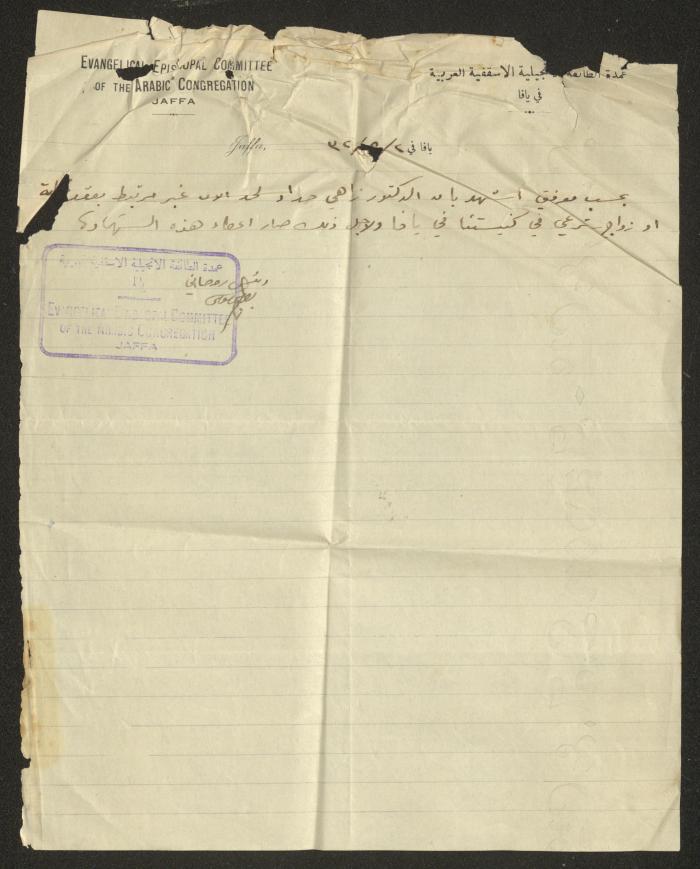 EVANGELICAL EPISCOPAL COMMITTEE
OF THE ARABIC CONGREGATION
JAFFA
عمدة الطائفة الانجيلية الاسقفية العربية
في يافا
Jaffa,
يافا في ٢/ /٣٢
بحسب موقفي اشهد بان الدكتور زاهي حداد لحد الان غير مرتبط بعقد
او زواج شرعي في كنيستنا في يافا ولاجل ذلك صار اعطاء هذه الشهادة
رئيس روحاني
عمدة الطائفة الانجيلية الاسقفية العربية
EVANGELICAL EPISCOPAL COMMITTEE
OF THE ARABIC CONGREGATION
JAFFA